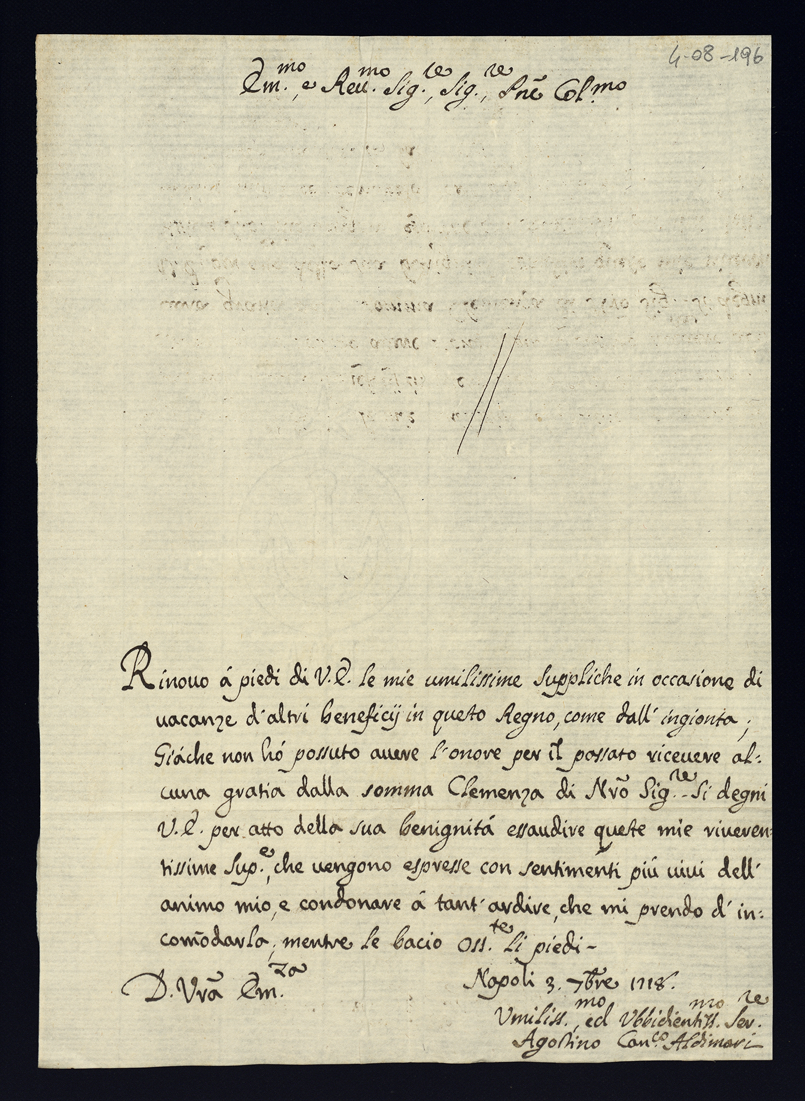 4-08-196
Em.mo, e Reu.mo Sig.re, Sig.re, Pnē Col.mo
Rinouo á piedi di V.E. le mie umilissime suppliche in occasione di
uacanze d'altri beneficij in questo Regno, come dall' ingionta;
Giáche non hó possuto auere l'onore per il passato riceuere al:
cuna gratia dalla somma Clemenza di Nrõ Sig.re Si degni
V.E. per atto della sua benignitá essaudire queste mie riueren:
tissime Sup.e, che uengono espresse con sentimenti piú uiui dell'
animo mio, e condonare á tant' ardire, che mi prendo d' in:
com̃odarla; mentre le bacio oss.te li piedi-
Napoli 3. 7bre 1718.
D. Vrã Em.za
Vmiliss.mo, ed Vbbidientiss.mo Ser.re
Agostino Can.co Aldimari